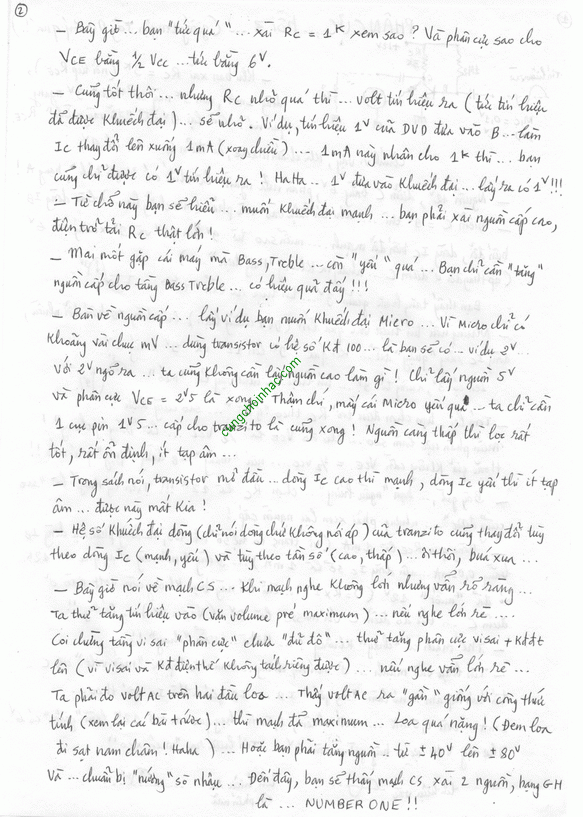 ②
- Bây giờ... bạn "tức quá"... xài Rc = 1K xem sao? Và phân cực sao cho
VCE bằng 1/2 Vcc... tức bằng 6V.
- Cũng tốt thôi... nhưng Rc nhỏ quá thì... volt tín hiệu ra (tức tín hiệu
đã được Khuếch đại)... sẽ nhỏ. Ví dụ, tín hiệu 1V của DVD đưa vào B... làm
Ic thay đổi lên xuống 1mA (xoay chiều)... 1mA này nhân cho 1K thì... bạn
cũng chỉ được có 1V tín hiệu ra! HaHa.. 1V đưa vào Khuếch đại... lấy ra có 1V!!!
- Từ chỗ này bạn sẽ hiểu... muốn Khuếch đại mạnh... bạn phải xài nguồn cấp cao,
điện trở tải Rc thật lớn!
- Mai mốt gặp cái máy mà Bass, Treble... còn "yếu" quá... Bạn chỉ cần "tăng"
nguồn cấp cho tầng Bass Treble... có hiệu quả đấy!!!
- Bàn về nguồn cấp... lấy ví dụ bạn muốn Khuếch đại Micro... Vì Micro chỉ có
Khoảng vài chục mV... dùng transistor có hệ số Kđ 100... là bạn sẽ có... ví dụ 2V...
Với 2V ngõ ra... ta cũng Không cần lấy nguồn cao làm gì! Chỉ lấy nguồn 5V
và phân cực VCE = 2V5 là xong! Thậm chí, mấy cái Micro yếu quá... ta chỉ cần
1 cục pin 1V5... cấp cho tranzito là cũng xong! Nguồn càng thấp thì lọc rất
tốt, rất ổn định, ít tạp âm...
- Trong sách nói, transistor mở đầu... dòng Ic cao thì mạnh, dòng Ic yếu thì ít tạp
âm... được này mất Kia!
- Hệ số Khuếch đại dòng (chỉ nói dòng chứ Không nói áp) của tranzito cũng thay đổi tùy
theo dòng Ic (mạnh, yếu) và tùy theo tần số (cao, thấp)... ôi thôi, búa xua...
- Bây giờ nói về mạch CS... Khi mạch nghe Không lớn nhưng vẫn rõ ràng...
Ta thử tăng tín hiệu vào (vặn volume pré maximum)... nếu nghe lớn rè....
Coi chừng tầng vi sai "phân cực" chưa "đủ đô"... thử tăng phân cực visai + Kđđt
lên (vì visai và Kđ điện thế Không tách riêng được)... nếu nghe vẫn lớn rè...
Ta phải đo volt AC trên hai đầu loa... Thấy volt AC ra "gần" giống với công thức
tính (xem lại các bài trước)... thì mạch đã maximum... Loa quá nặng! (Đem loa
đi sạt nam châm! Haha)... Hoặc bạn phải tăng nguồn.. từ ±40V lên ±80V
Và... chuẩn bị "nướng" sò nhậu... Đến đây, bạn sẽ thấy mạch CS xài 2 nguồn, hạng G-H
là... NUMBER ONE!!
cungchoinhac.com